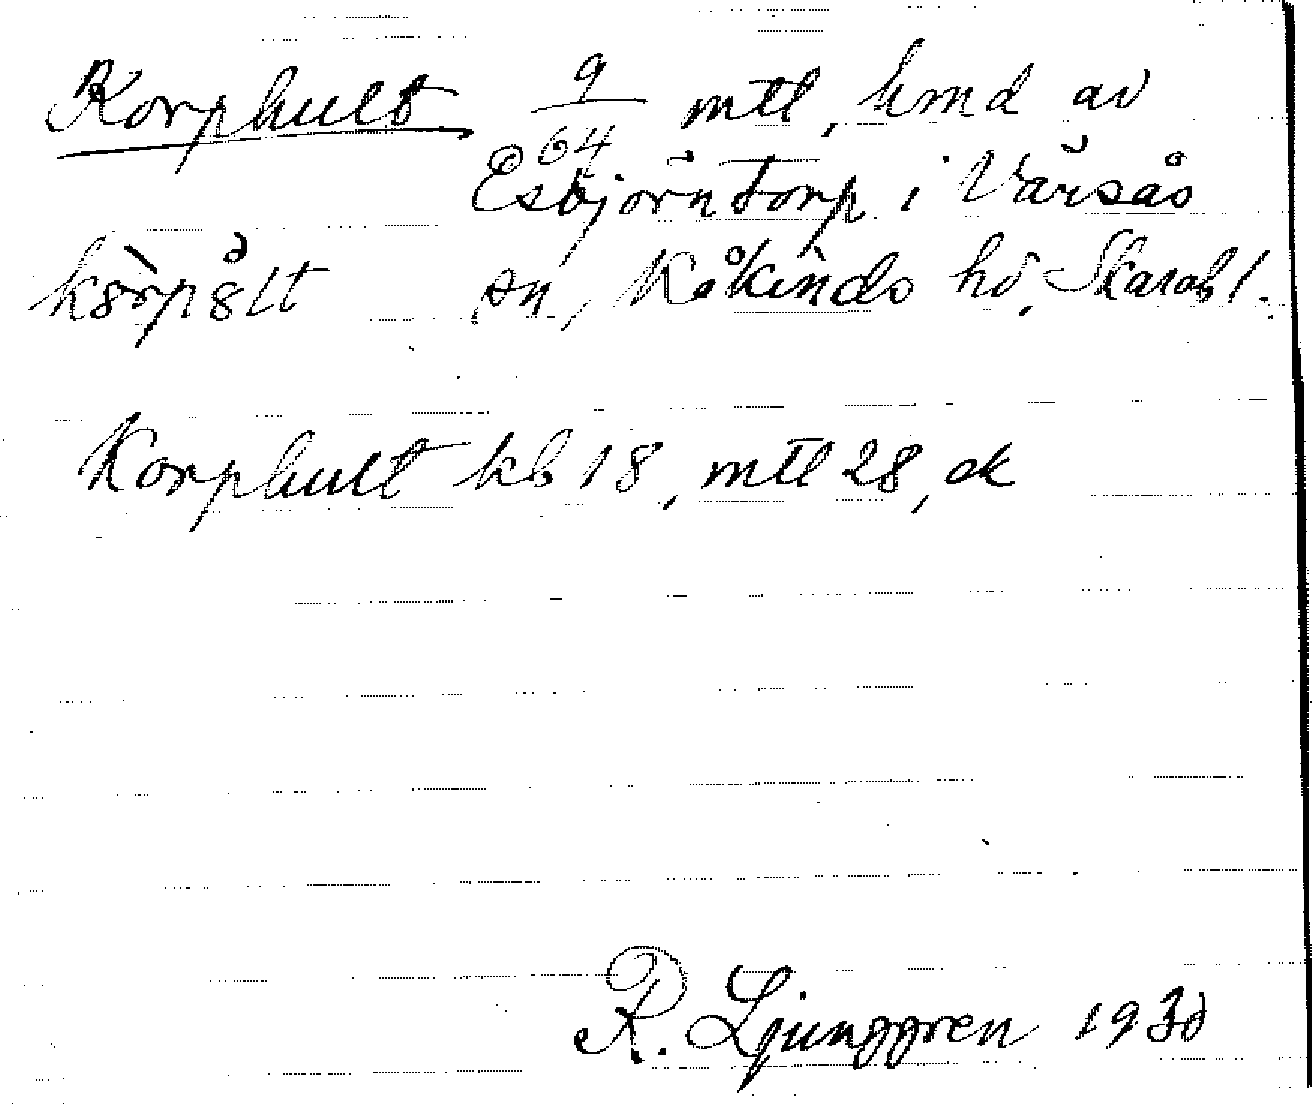 Korphult 9/64 mtl, hmd av
Esbjörntorp i Värsås
sn, Kåkinds hd, Skarab l.
Korphult kb 18, mtl 28, ek
R. Ljunggren 1930